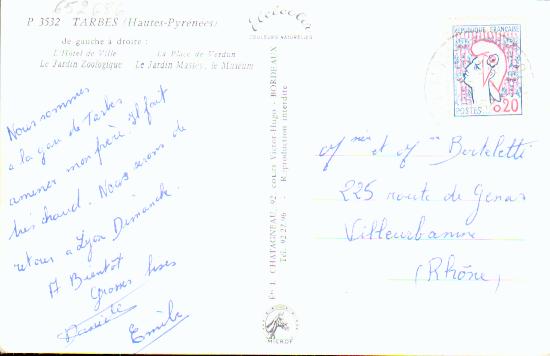 652686
P 3532 TARBES (Hautes-Pyrénées)
de gauche à droite :
L'Hôtel de Ville La Place de Verdun
Le Jardin Zoologique Le Jardin Massey, le Museum
COULEURS NATURELLES
RÉPUBLIQUE FRANÇAISE
POSTES 0,20
Nous sommes
a la gare de Tarbes
amener mon frère. Il fait
très chaud. Nous serons de
retour a Lyon Dimanche.
A Bientot
Grosses bises
Emile
Ets L. CHATAGNEAU, 92 cours Victor-Hugo - BORDEAUX
Tél. 92.27.96 - Reproduction interdite
MICROF
et Berteletti
225 route de Genas
Villeurbanne
(Rhône)